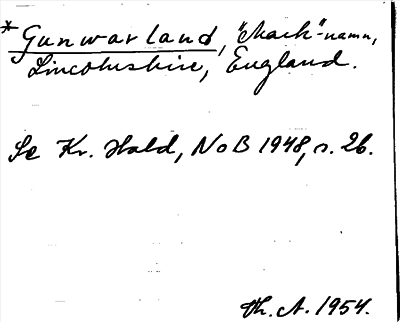 *Gunwarland, "Mark"-namn,
Lincolnshire, England.
Se Kr. Hald, NoB 1948, s. 26.
Th. A. 1954.